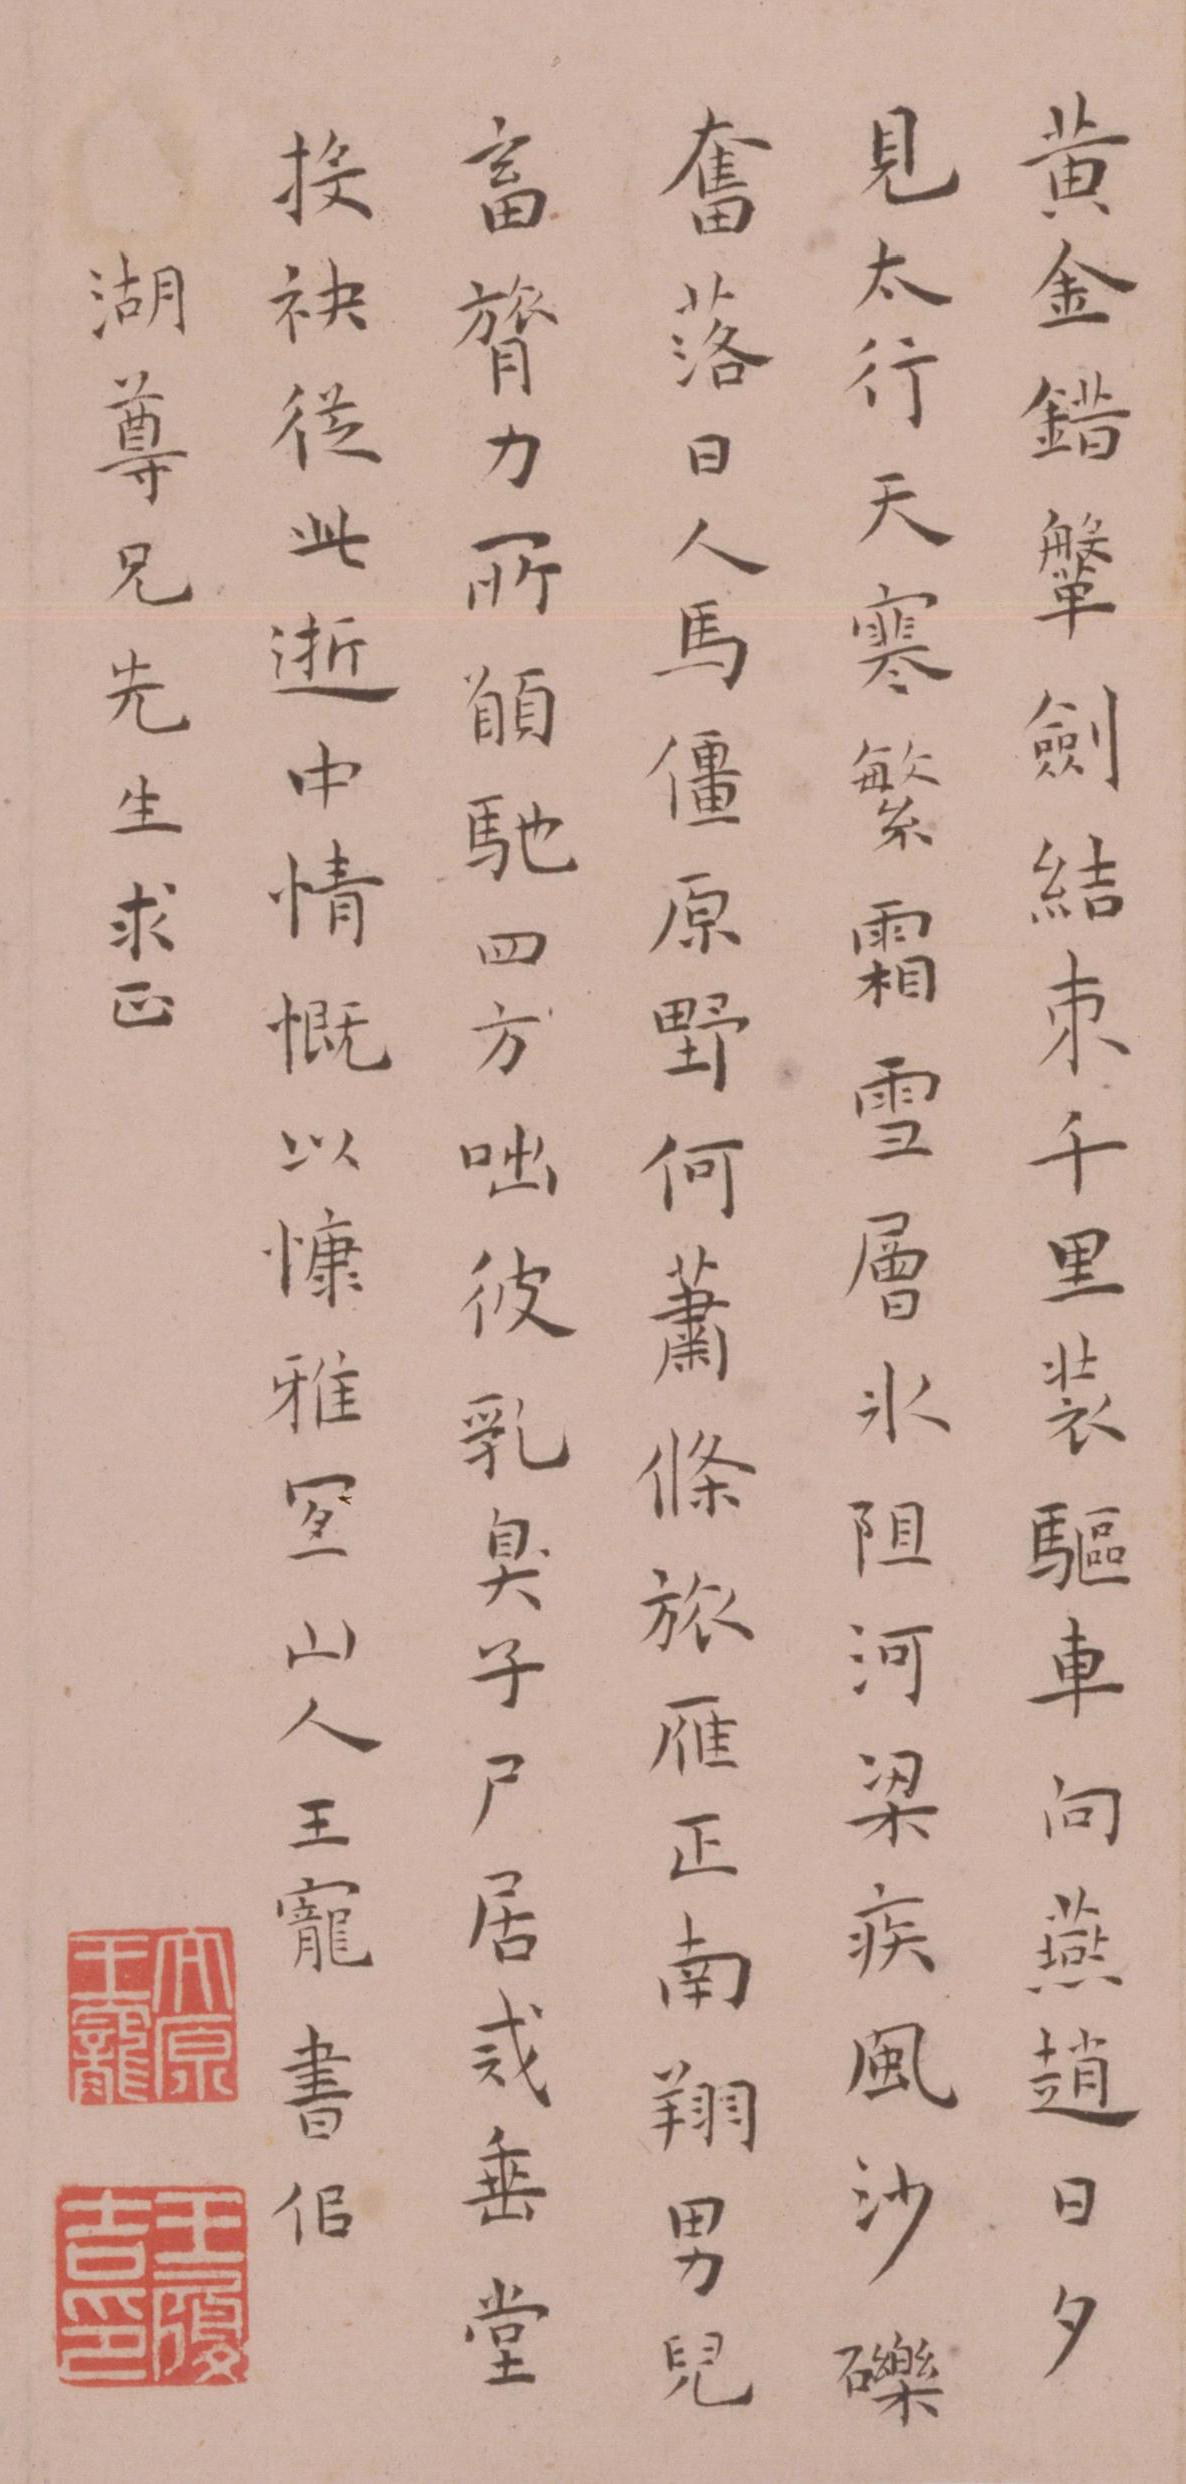 黄金錯鞶劍結束千里装驅車向燕趙日夕
見太行天寒繁霜雪層冰阻河梁疾風沙礫
奮落日人馬僵原野何蕭條旅雁正南翔男兒
畜膂力所願馳四方咄彼乳臭子尸居戒垂堂
投袂從此逝中情慨以慷雅宜山人王寵書似
湖尊兄先生求正
太原王寵
王履吉印